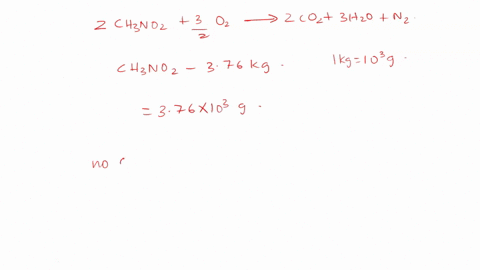 2 CH3NO2 + 3/2 O2 ⟶ 2CO2 + 3H2O + N2
CH3NO2 – 3.76 kg. 1kg = 10³g.
= 3.76×10³ g.
no (